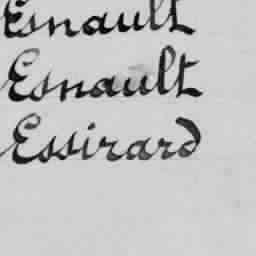 Esnault
Esnault
Essirard